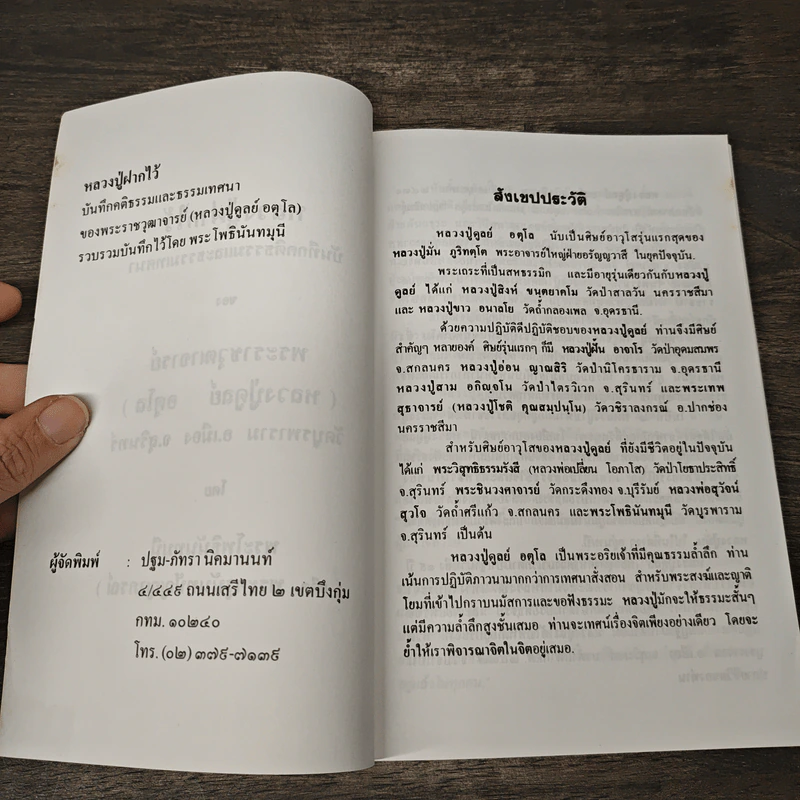 หลวงปู่ฝากไว้
บันทึกคติธรรมและธรรมเทศนา
ของพระราชวุฒาจารย์ (หลวงปู่ดูลย์ อตุโล)
รวบรวมบันทึกไว้โดย พระโพธินันทมุนี
ผู้จัดพิมพ์ : ปฐม-ภัทรา นิคมานนท์
๔/๔๔๙ ถนนเสรีไทย ๒ เขตบึงกุ่ม
กทม. ๑๐๒๔๐
โทร. (๐๒) ๓๗๙-๗๑๓๙
สังเขปประวัติ
หลวงปู่ดูลย์ อตุโล นับเป็นศิษย์อาวุโสรุ่นแรกสุดของ
หลวงปู่มั่น ภูริทตฺโต พระอาจารย์ใหญ่ฝ่ายอรัญญวาสี ในยุคปัจจุบัน.
พระเถระที่เป็นสหธรรมิก และมีอายุรุ่นเดียวกันกับหลวงปู่
ดูลย์ ได้แก่ หลวงปู่สิงห์ ขนฺตยาคโม วัดป่าสาลวัน นครราชสีมา
และ หลวงปู่ขาว อนาลโย วัดถ้ำกลองเพล จ.อุดรธานี.
ด้วยความปฏิบัติดีปฏิบัติชอบของหลวงปู่ดูลย์ ท่านจึงมีศิษย์
สำคัญๆ หลายองค์ ศิษย์รุ่นแรกๆ ก็มี หลวงปู่ฝั้น อาจาโร วัดป่าอุดมสมพร
จ.สกลนคร หลวงปู่อ่อน ญาณสิริ วัดป่านิโครธาราม จ.อุดรธานี
หลวงปู่สาม อกิญฺจโน วัดป่าไตรวิเวก จ.สุรินทร์ และพระเทพ
สุธาจารย์ (หลวงปู่โชติ คุณสมฺปนฺโน) วัดวชิราลงกรณ์ อ.ปากช่อง
นครราชสีมา
สำหรับศิษย์อาวุโสของหลวงปู่ดูลย์ ที่ยังมีชีวิตอยู่ในปัจจุบัน
ได้แก่ พระวิสุทธิธรรมรังสี (หลวงพ่อเปลี่ยน โอภาโส) วัดป่าโยธาประสิทธิ์
จ.สุรินทร์ พระชินวงศาจารย์ วัดกระดึงทอง จ.บุรีรัมย์ หลวงพ่อสุวัจน์
สุวโจ วัดถ้ำศรีแก้ว จ.สกลนคร และพระโพธินันทมุนี วัดบูรพาราม
จ.สุรินทร์ เป็นต้น
หลวงปู่ดูลย์ อตุโล เป็นพระอริยเจ้าที่มีคุณธรรมล้ำลึก ท่าน
เน้นการปฏิบัติภาวนามากกว่าการเทศนาสั่งสอน สำหรับพระสงฆ์และญาติ
โยมที่เข้าไปกราบนมัสการและขอฟังธรรมะ หลวงปู่มักจะให้ธรรมะสั้นๆ
แต่มีความล้ำลึกสูงชั้นเสมอ ท่านจะเทศน์เรื่องจิตเพียงอย่างเดียว โดยจะ
ย้ำให้เราพิจารณาจิตในจิตอยู่เสมอ.